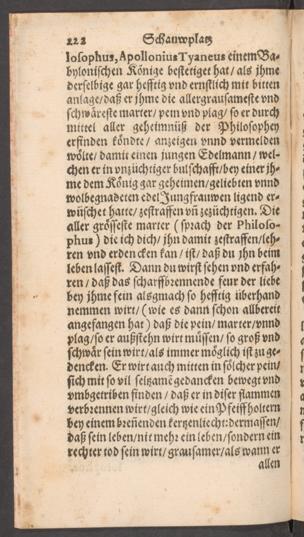 222 Schauwplatz
losophus, Apollonius Tyaneus einem Ba-
bylonischen Könige bestetiget hat / als jhme
derselbige gar hefftig vnd ernstlich mit bitten
anlage / daß er jhme die allergrausameste vnd
schwäreste marter / pein vnd plag / so er durch
mittel aller geheimnüß der Philosophey
erfinden köndte / anzeigen vnnd vermelden
wölte / damit einen jungen Edelmann / wel-
chen er in vnzüchtiger bulschafft / bey einer jh-
me dem König gar geheimen / geliebten vnnd
wolbegnadeten edel Jungfrauwen ligend er-
wüschet hatte / zestraffen vñ zezüchtigen. Die
aller grösseste marter (sprach der Philoso-
phus) die ich dich / jhn damit zestraffen / leh-
ren vnd erdencken kan / ist / daß du jhn beim
leben lassest. Dann du wirst sehen vnd erfah-
ren / daß das scharffbrennende feur der liebe
bey jhme sein alsgmach so hefftig überhand
nemmen wirt / (wie es dann schon allbereit
angefangen hat) daß die pein / marter / vnnd
plag / so er außstehn wirt müssen / so groß vnd
schwär sein wirt / als immer möglich ist zu ge-
dencken. Er wirt auch mitten in sölcher pein /
sich mit so vil seltzamē gedancken bewegt vnd
vmbgetriben finden / daß er in diser flammen
verbrennen wirt / gleich wie ein Pfeiffholtern
bey einem breñenden kertzenliecht: dermassen /
daß sein leben / nit mehr ein leben / sondern ein
rechter tod sein wirt / grausamer / als wann er
allen